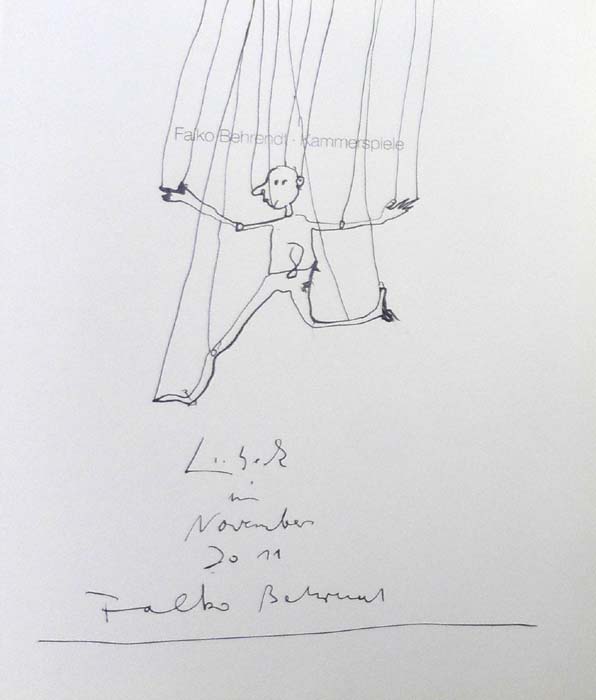 Falko Behrendt · Kammerspiele
Lübeck
im
November
2011
Falko Behrendt